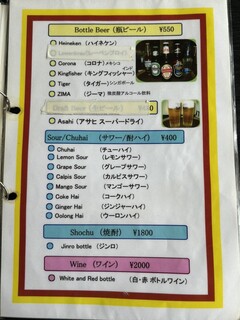 Bottle Beer (瓶ビール) ¥550
Heineken (ハイネケン)
Corona (コロナ) メキシコ
Kingfisher (キングフィッシャー) インド
Tiger (タイガー) シンガポール
ZIMA (ジーマ) 微炭酸アルコール飲料
Asahi (アサヒ スーパードライ)
Sour/Chuhai (サワー/酎ハイ) ¥400
Chuhai (チューハイ)
Lemon Sour (レモンサワー)
Grape Sour (グレープサワー)
Calpis Sour (カルピスサワー)
Mango Sour (マンゴーサワー)
Coke Hai (コークハイ)
Ginger Hai (ジンジャーハイ)
Oolong Hai (ウーロンハイ)
Shochu (焼酎) ¥1800
Jinro bottle (ジンロ)
Wine (ワイン) ¥2000
White and Red bottle (白・赤 ボトルワイン)